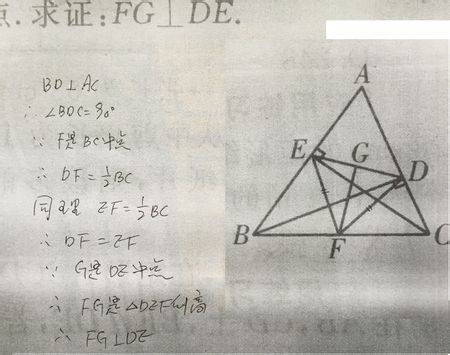 点.求证:FG⊥DE.
BD⊥AC
∴ ∠BDC=90°
∵ F是BC中点
∴ DF=½BC
同理 EF=½BC
∴ DF=EF
∵ G是DE中点
∴ FG是△DEF的高
∴ FG⊥DE
A
E
G
D
B
F
C